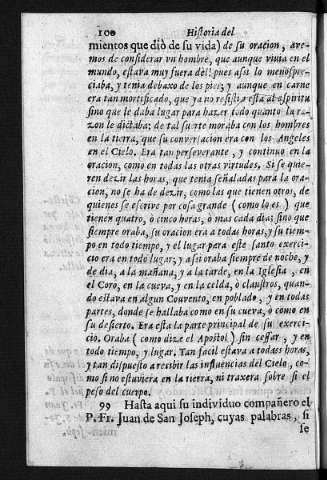 100 Historia del
mientos que diò de su vida) de su oracion, avre-
mos de considerar vn hombre, que aunque viuia en el
mundo, estava muy fuera dèl: pues assi lo menospre-
ciaba, y tenia debaxo de los pies; y aunque en carne
era tan mortificado, que ya no resistia esta al espiritu
sino que le daba lugar para hazer todo quanto la ra-
zon le dictaba: de tal suerte moraba con los hombres
en la tierra, que su conversacion era con los Angeles
en el Cielo. Era tan perseverante, y continuo en la
oracion, como en todas las otras virtudes. Si se quie-
ren dezir las horas, que tenia señaladas para la ora-
cion, no se ha de dezir, como las que tienen otros, de
quienes se escrive por cosa grande (como lo es) que
tienen quatro, ò cinco horas, ò mas cada dia; sino que
siempre oraba, su oracion era a todas horas, y su tiem-
po en todo tiempo, y el lugar para este santo exerci-
cio era en todo lugar; y assi oraba siempre de noche, y
de dia, a la mañana, y a la tarde, en la Iglesia, en
el Coro, en la cueva, y en la celda, ò claustros, quan-
do estava en algun Convento, en poblado, y en todas
partes, donde se hallaba como en su cueva, ò como en
su desierto. Era esta la parte principal de su exerci-
cio. Oraba (como dize el Apostol) sin cessar, y en
todo tiempo, y lugar. Tan facil estava a todas horas,
y tan dispuesto a recibir las influencias del Cielo, co-
mo si no estuviera en la tierra, ni traxera sobre si el
peso del cuerpo.
99 Hasta aqui su individuo compañero el
P. Fr. Juan de San Joseph, cuyas palabras, si
se